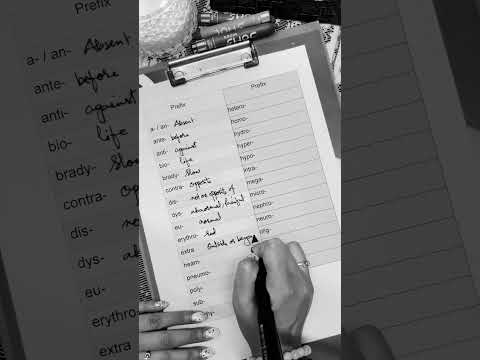 Prefix
a- / an- Absent
ante- before
anti- against
bio- life
brady- Slow
contra- opposite
dis- not or opposite of
dys- abnormal, painful
eu- normal
erythro- red
extra outside or beyon
heam-
pneumo-
poly-
sub-
Prefix
hetero-
homo-
hydro-
hyper-
hypo-
intra-
mega-
micro-
nephro-
neuro-
olig-
Prefix
a- / an- Absent
ante- before
anti- against
bio- life
brady- Slow
contra- opposi
dis- not or
dys- a
eu-
erythro-
extra